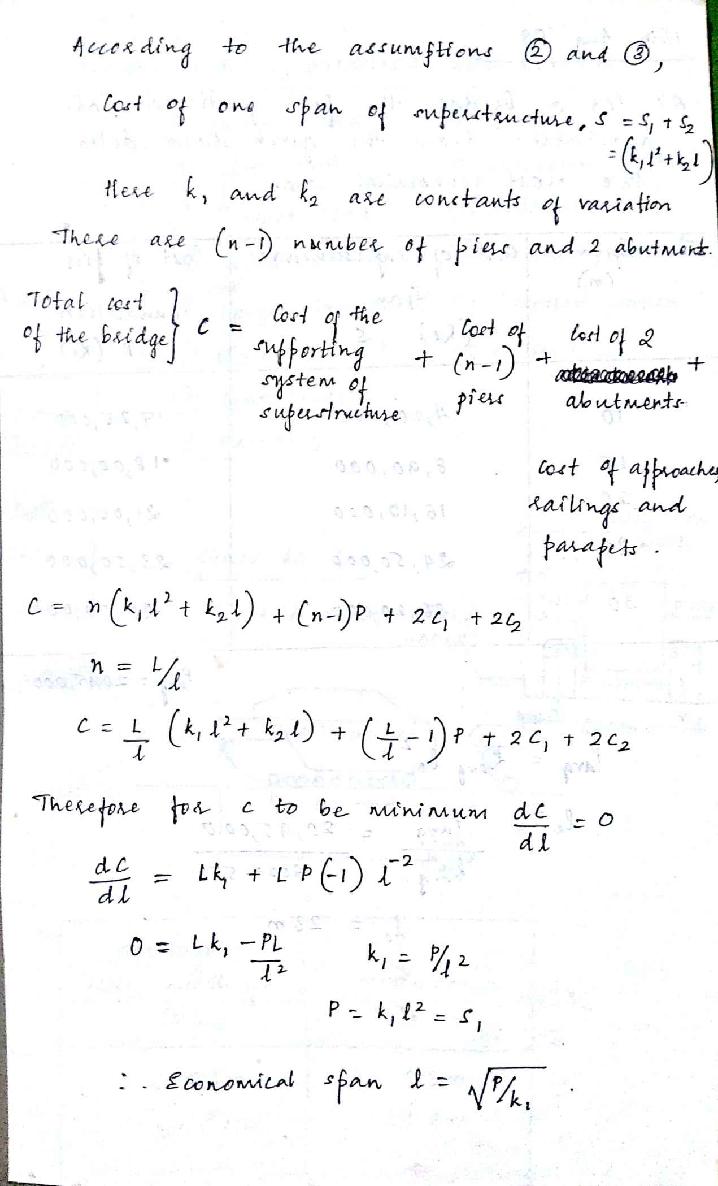 According to the assumptions ② and ③,
Cost of one span of superstructure, S = S₁ + S₂
= (k₁l² + k₂l)
Here k₁ and k₂ are constants of variation
There are (n-1) number of piers and 2 abutment.
Total cost of the bridge} C = Cost of the supporting system of superstructure + Cost of (n-1) piers + Cost of 2 abutments +
cost of approaches,
railings and
parapets.
C = n(k₁l² + k₂l) + (n-1)P + 2C₁ + 2C₂
n = L/l
C = L/l (k₁l² + k₂l) + (L/l - 1)P + 2C₁ + 2C₂
Therefore for c to be minimum dC/dl = 0
dC/dl = Lk₁ + LP(-1) l⁻²
0 = Lk₁ - PL/l² k₁ = P/l²
P = k₁l² = S₁
∴ Economical span l = √P/k₁.